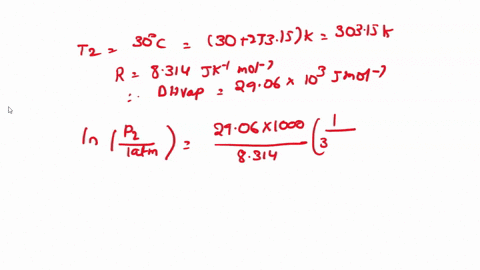 T₂ = 30°C = (30+273.15)K = 303.15K
R = 8.314 JK⁻¹ mol⁻¹
∴ ΔHvap = 29.06 × 10³ Jmol⁻¹
ln (P₂/1atm) = 29.06×1000/8.314 (1/3